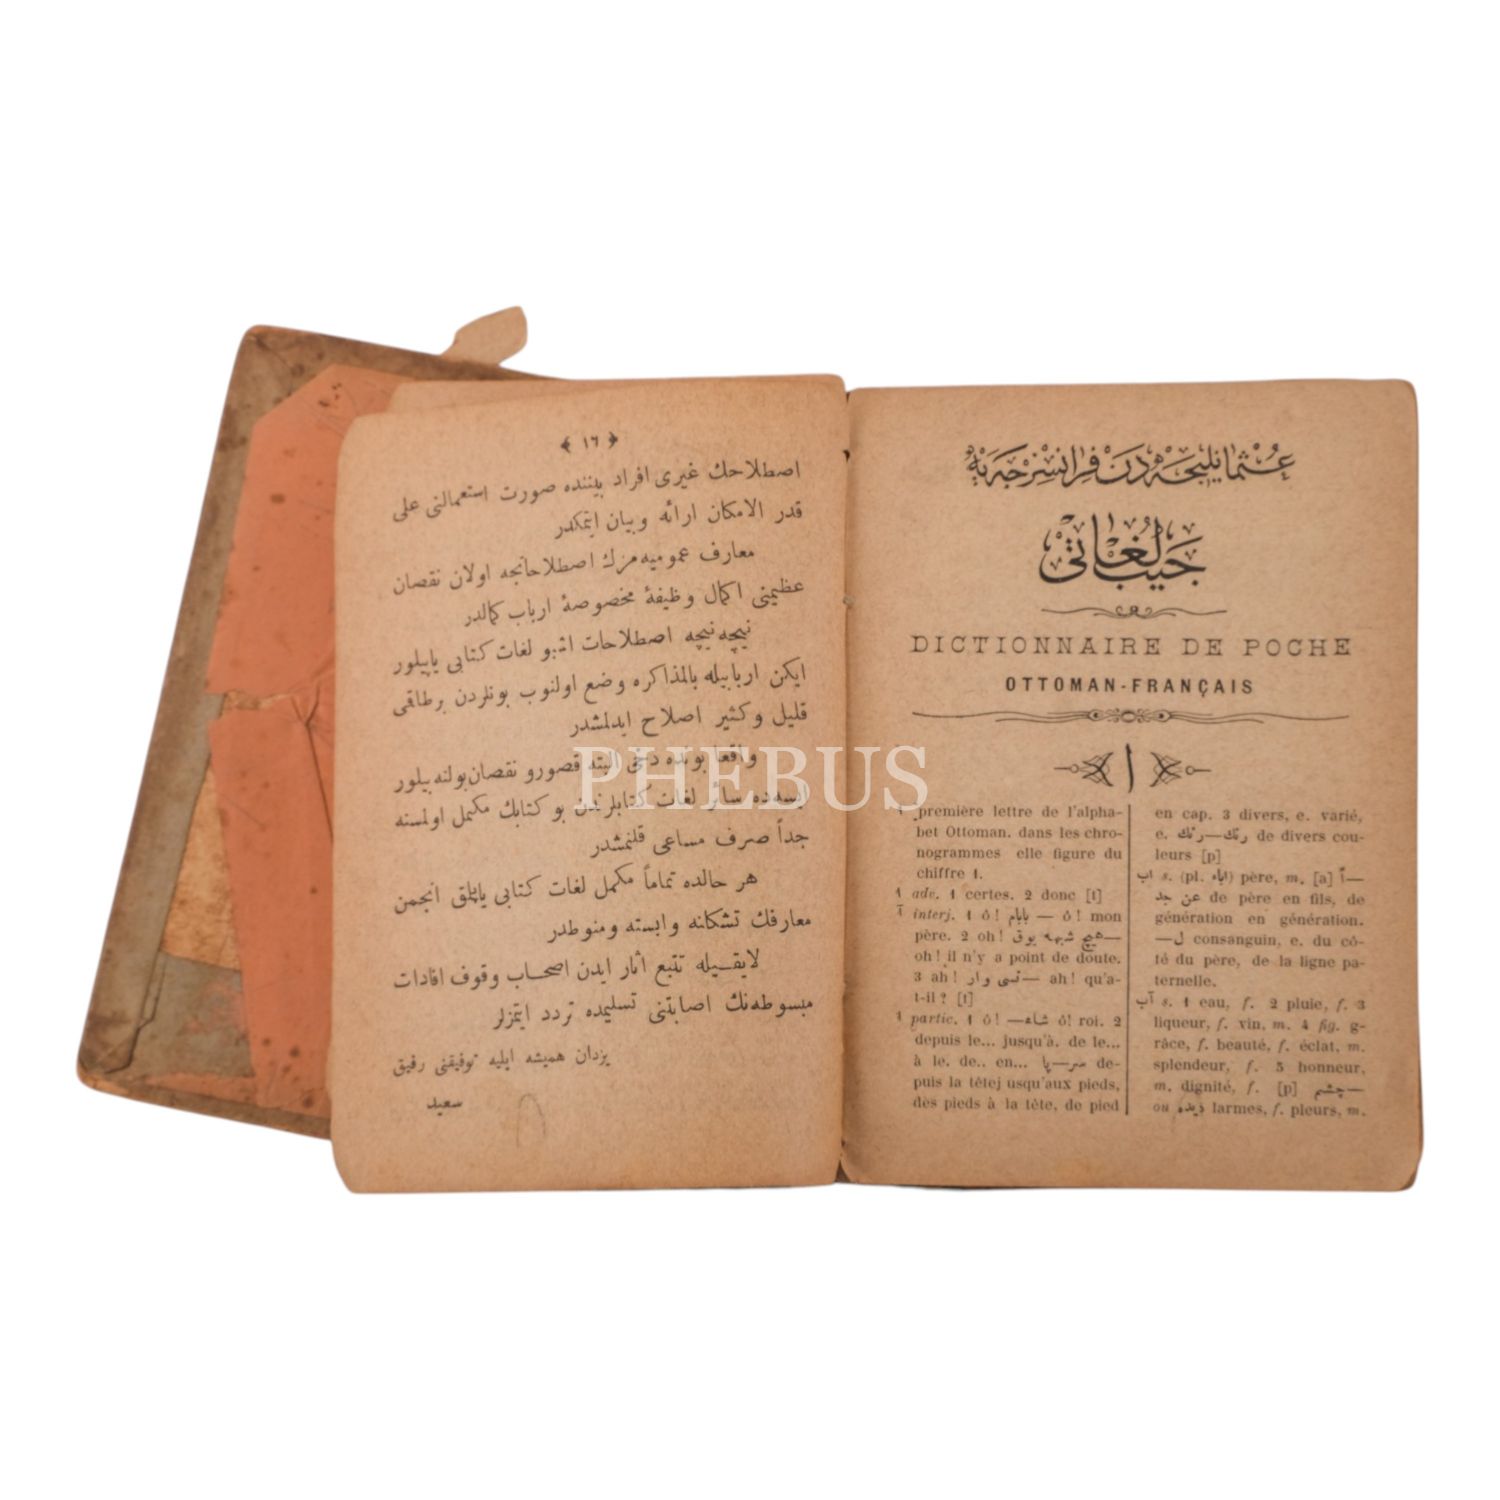 ﴾ ١٦ ﴿
اصطلاحك غیری افراد بیننده صورت استعمالنی علی
قدر الامكان ارائه و بیان ایتمكدر
معارف عمومیه‌مزك اصطلاحانجه اولان نقصان
عظیمنی اكمال وظیفهٔ مخصوصهٔ ارباب كمالدر
نیچه نیچه اصطلاحات اشبو لغات كتابی یاپیلور
ایكن اربابیله بالمذاكره وضع اولنوب بونلردن برطاقمی
قلیل و كثیر اصلاح ایدلمشدر
واقعا بونده دخی البته قصور و نقصان بولنه بیلور
ایسه‌ده سائر لغات كتابلرندن بو كتابك مكمل اولمسنه
جداً صرف مساعی قلنمشدر
هر حالده تماماً مكمل لغات كتابی یاپلمق انجمن
معارفك تشكلنه وابسته و منوطدر
لایقیله تتبع آثار ایدن اصحاب وقوف افادات
مبسوطه‌نك اصابتنی تسلیمده تردد ایتمزلر
یزدان همیشه ایلیه توفیقنی رفیق
سعید
عثمانلیجه‌دن فرانسزجه‌یه
جیب لغاتی
DICTIONNAIRE DE POCHE
OTTOMAN-FRANÇAIS
ا
ا première lettre de l'alpha-
bet Ottoman. dans les chro-
nogrammes elle figure du
chiffre 1.
ا adv. 1 certes. 2 donc [t]
آ interj. 1 ô! بابام — ô! mon
père. 2 oh! هیچ شبهه یوق—
oh! il n'y a point de doute.
3 ah! نسی وار— ah! qu'a-
t-il? [t]
ا partic. 1 ô! شاه— ô! roi. 2
depuis le... jusqu'à. de le...
à le. de.. en... سر—پا de-
puis la têtej usqu'aux pieds,
des pieds à la tête, de pied
en cap. 3 divers, e. varié,
e. رنك—رنك de divers cou-
leurs [p]
اب s. (pl. اباء) père, m. [a] اً—
عن جد de père en fils, de
génération en génération.
ل— consanguin, e. du cô-
té du père, de la ligne pa-
ternelle.
آب s. 1 eau, f. 2 pluie, f. 3
liqueur, f. vin, m. 4 fig. g-
râce, f. beauté, f. éclat, m.
splendeur, f. 5 honneur,
m. dignité, f. [p] چشم—
ou دیده larmes, f. pleurs, m.
PHEBUS